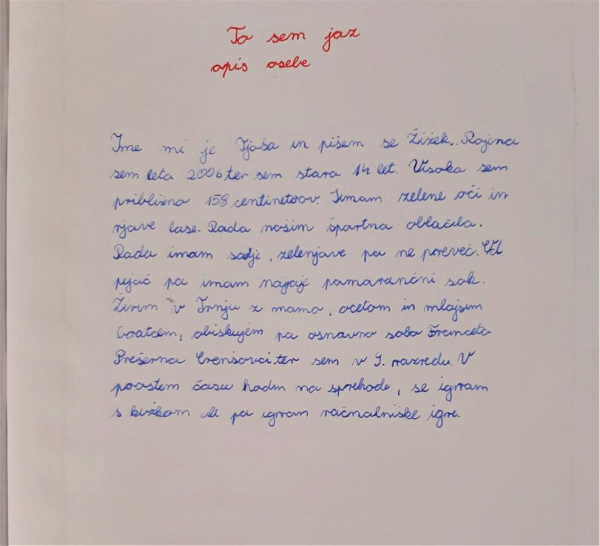 To sem jaz
opis osebe
Ime mi je Tjaša in pišem se Žižek. Rojena
sem leta 2006 ter sem stara 14 let. Visoka sem
približno 158 centimetrov. Imam zelene oči in
rjave lase. Rada nosim športna oblačila.
Rada imam sadje, zelenjave pa ne preveč. Od
pijač pa imam najrajš pomarančni sok.
Živim v Trnju z mamo, očetom in mlajšim
bratcem, obiskujem pa osnovno šolo Franceta
Prešerna Črenšovci ter sem v 9. razredu. V
prostem času hodim na sprehode, se igram
s kužkom ali pa igram računalniške igre.